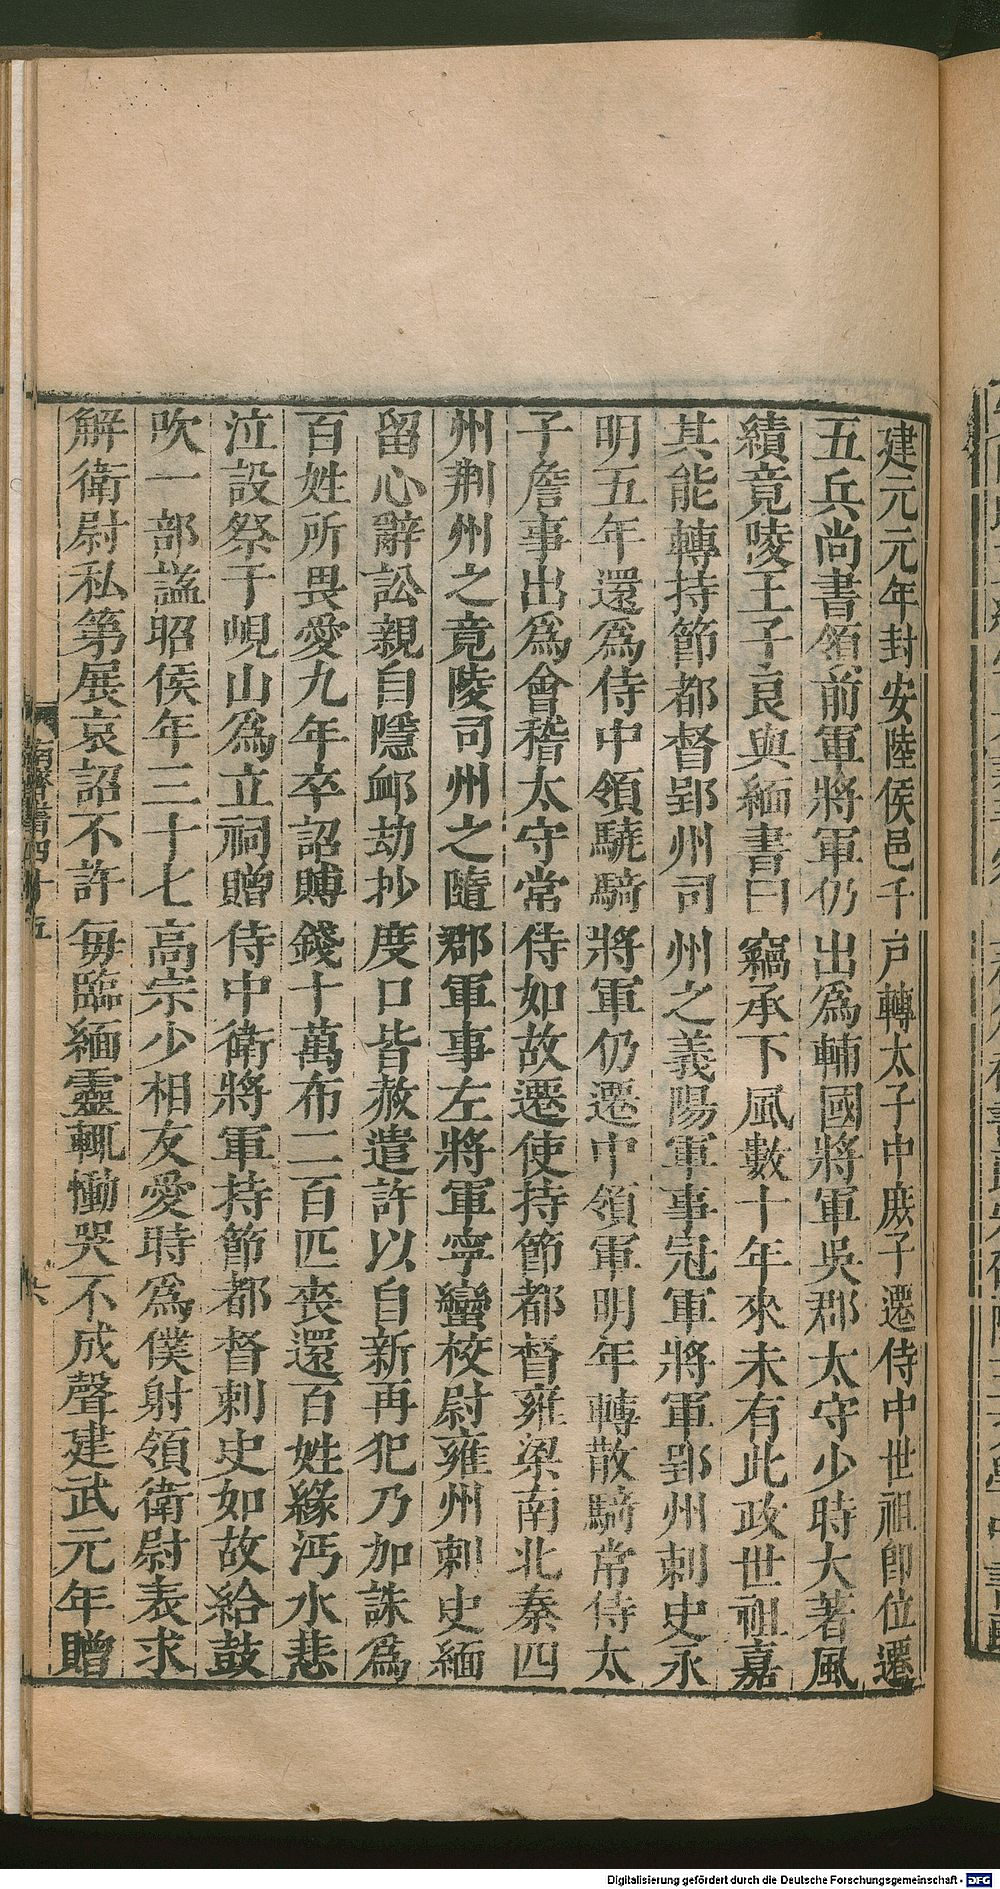 建元元年封安陸侯邑千戶轉太子中庶子遷侍中世祖卽位遷
五兵尚書領前軍將軍仍出爲輔國將軍吳郡太守少時大著風
績竟陵王子良與緬書曰竊承下風數十年來未有此政世祖嘉
其能轉持節都督郢州司州之義陽軍事冠軍將軍郢州刺史永
明五年還爲侍中領驍騎將軍仍遷中領軍明年轉散騎常侍太
子詹事出爲會稽太守常侍如故遷使持節都督雍梁南北秦四
州荆州之竟陵司州之隨郡軍事左將軍寧蠻校尉雍州刺史緬
留心辭訟親自隱䘏劫抄度口皆赦遣許以自新再犯乃加誅爲
百姓所畏愛九年卒詔賻錢十萬布二百匹喪還百姓緣沔水悲
泣設祭于峴山爲立祠贈侍中衛將軍持節都督刺史如故給鼓
吹一部諡昭侯年三十七高宗少相友愛時爲僕射領衛尉表求
解衛尉私第展哀詔不許每臨緬靈輒慟哭不成聲建武元年贈
南齊書四十五
六
Digitalisierung gefördert durch die Deutsche Forschungsgemeinschaft - DFG